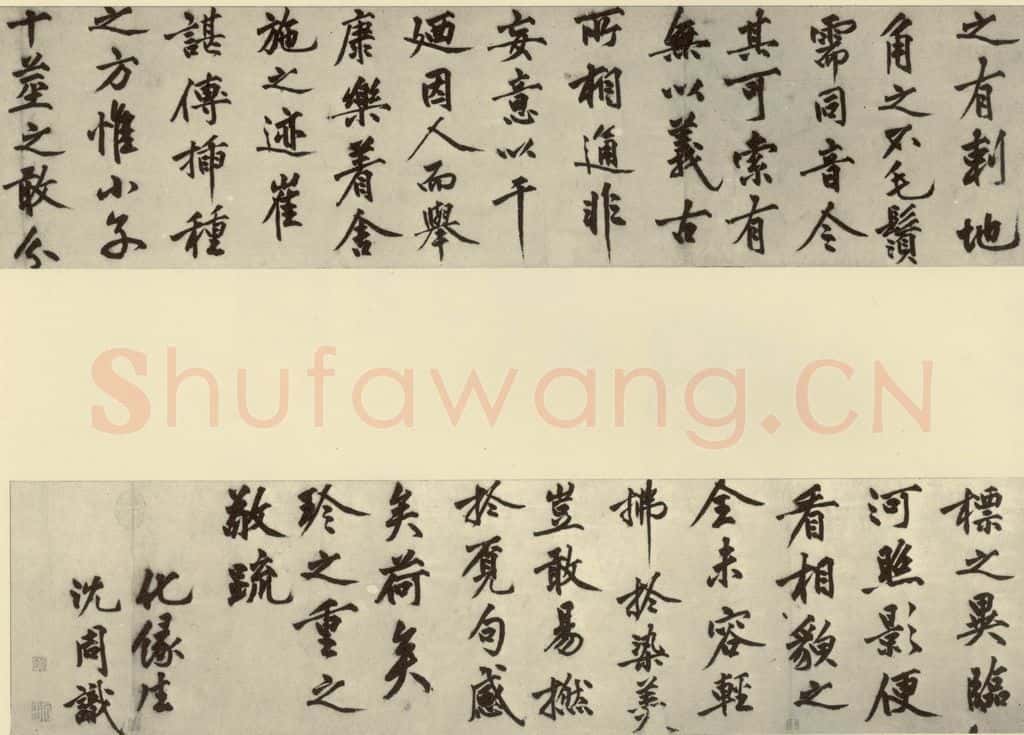 之有刺地
角之不毛鬚
需同音今
其可索有
無以義古
所相通非
妄意以干
廼因人而舉
康樂着舍
施之迹崔
諶傳揷種
之方惟小子
十莖之敢分
Shufawang.CN
標之異臨
河照影便
看相貌之
全未容輕
拂於染羹
豈敢易撚
於覓句感
矣荷矣
珍之重之
敬疏
化緣生
沈周識